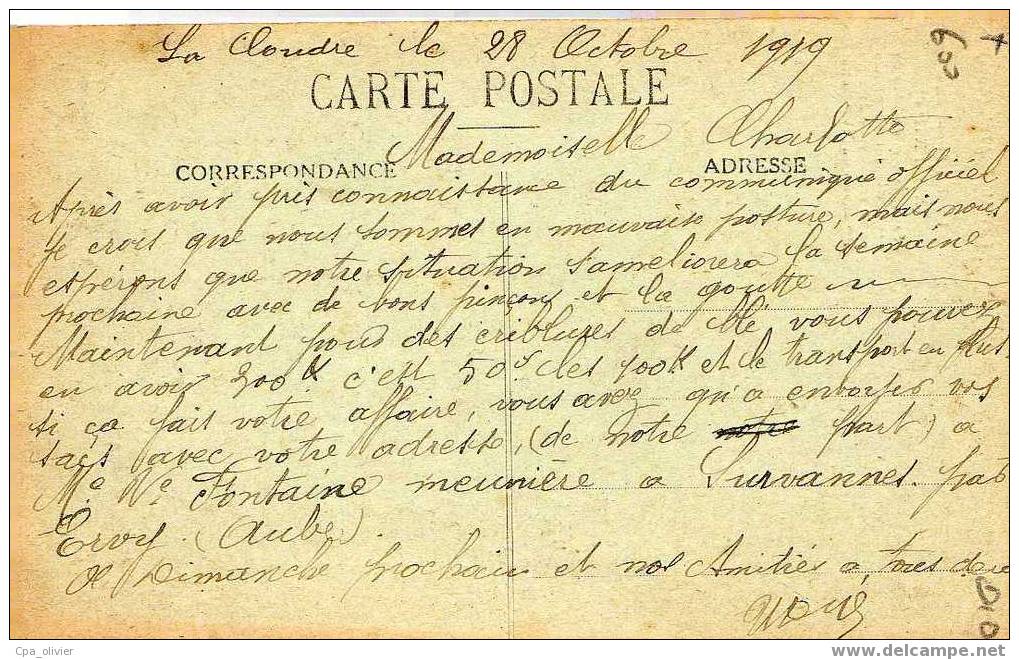 La Coudre le 28 Octobre 1919
CARTE POSTALE
Mademoiselle Charlotte
CORRESPONDANCE ADRESSE
Après avoir pris connaissance du communiqué officiel
je crois que nous sommes en mauvaise posture, mais nous
espérons que notre situation s'ameliorera la semaine
prochaine avec de bons pinçons et la goutte
Maintenant pour des criblures de blé vous pouvez
en avoir 200 k c'est 50 les 100 k et le transport en plus
si ça fait votre affaire, vous avez qu'a envoyer vos
sacs avec votre adresse, (de notre part) a
Me Ve Fontaine meunière a Survannes par
Ervy (Aube)
A Dimanche prochain et nos Amitiés a tous deux
Cpa_olivier
www.delcampe.net